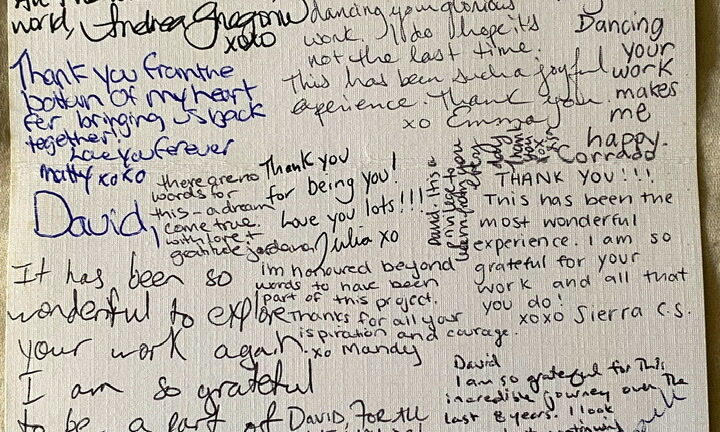 world, Andrea Gregorio
xoxo
dancing your glorious
work. I do hope it's
not the last time.
This has been such a joyful
experience. Thank you
xo Emma
Dancing
your
work
makes
me
happy.
Corrado
Thank you from the
bottom of my heart
for bringing us back
together!
Love you forever
Matty xoxo
there are no
words for
this - a dream
come true
with love +
gratitude jordana
Thank you
for being you!
Love you lots!!!
Julia xo
David, this is
privilege
THANK YOU!!!
This has been the
most wonderful
experience. I am so
grateful for your
work and all that
you do!
xoxo Sierra C.S.
David,
It has been so
wonderful to explore
your work again.
I am so grateful
to be a part of
im honoured beyond
words to have been
part of this project.
Thanks for all your
ispiration and courage.
xo Mandy
DAVID, FOR All
David
I am so grateful for This
incredible journey over The
last 8 years. I look